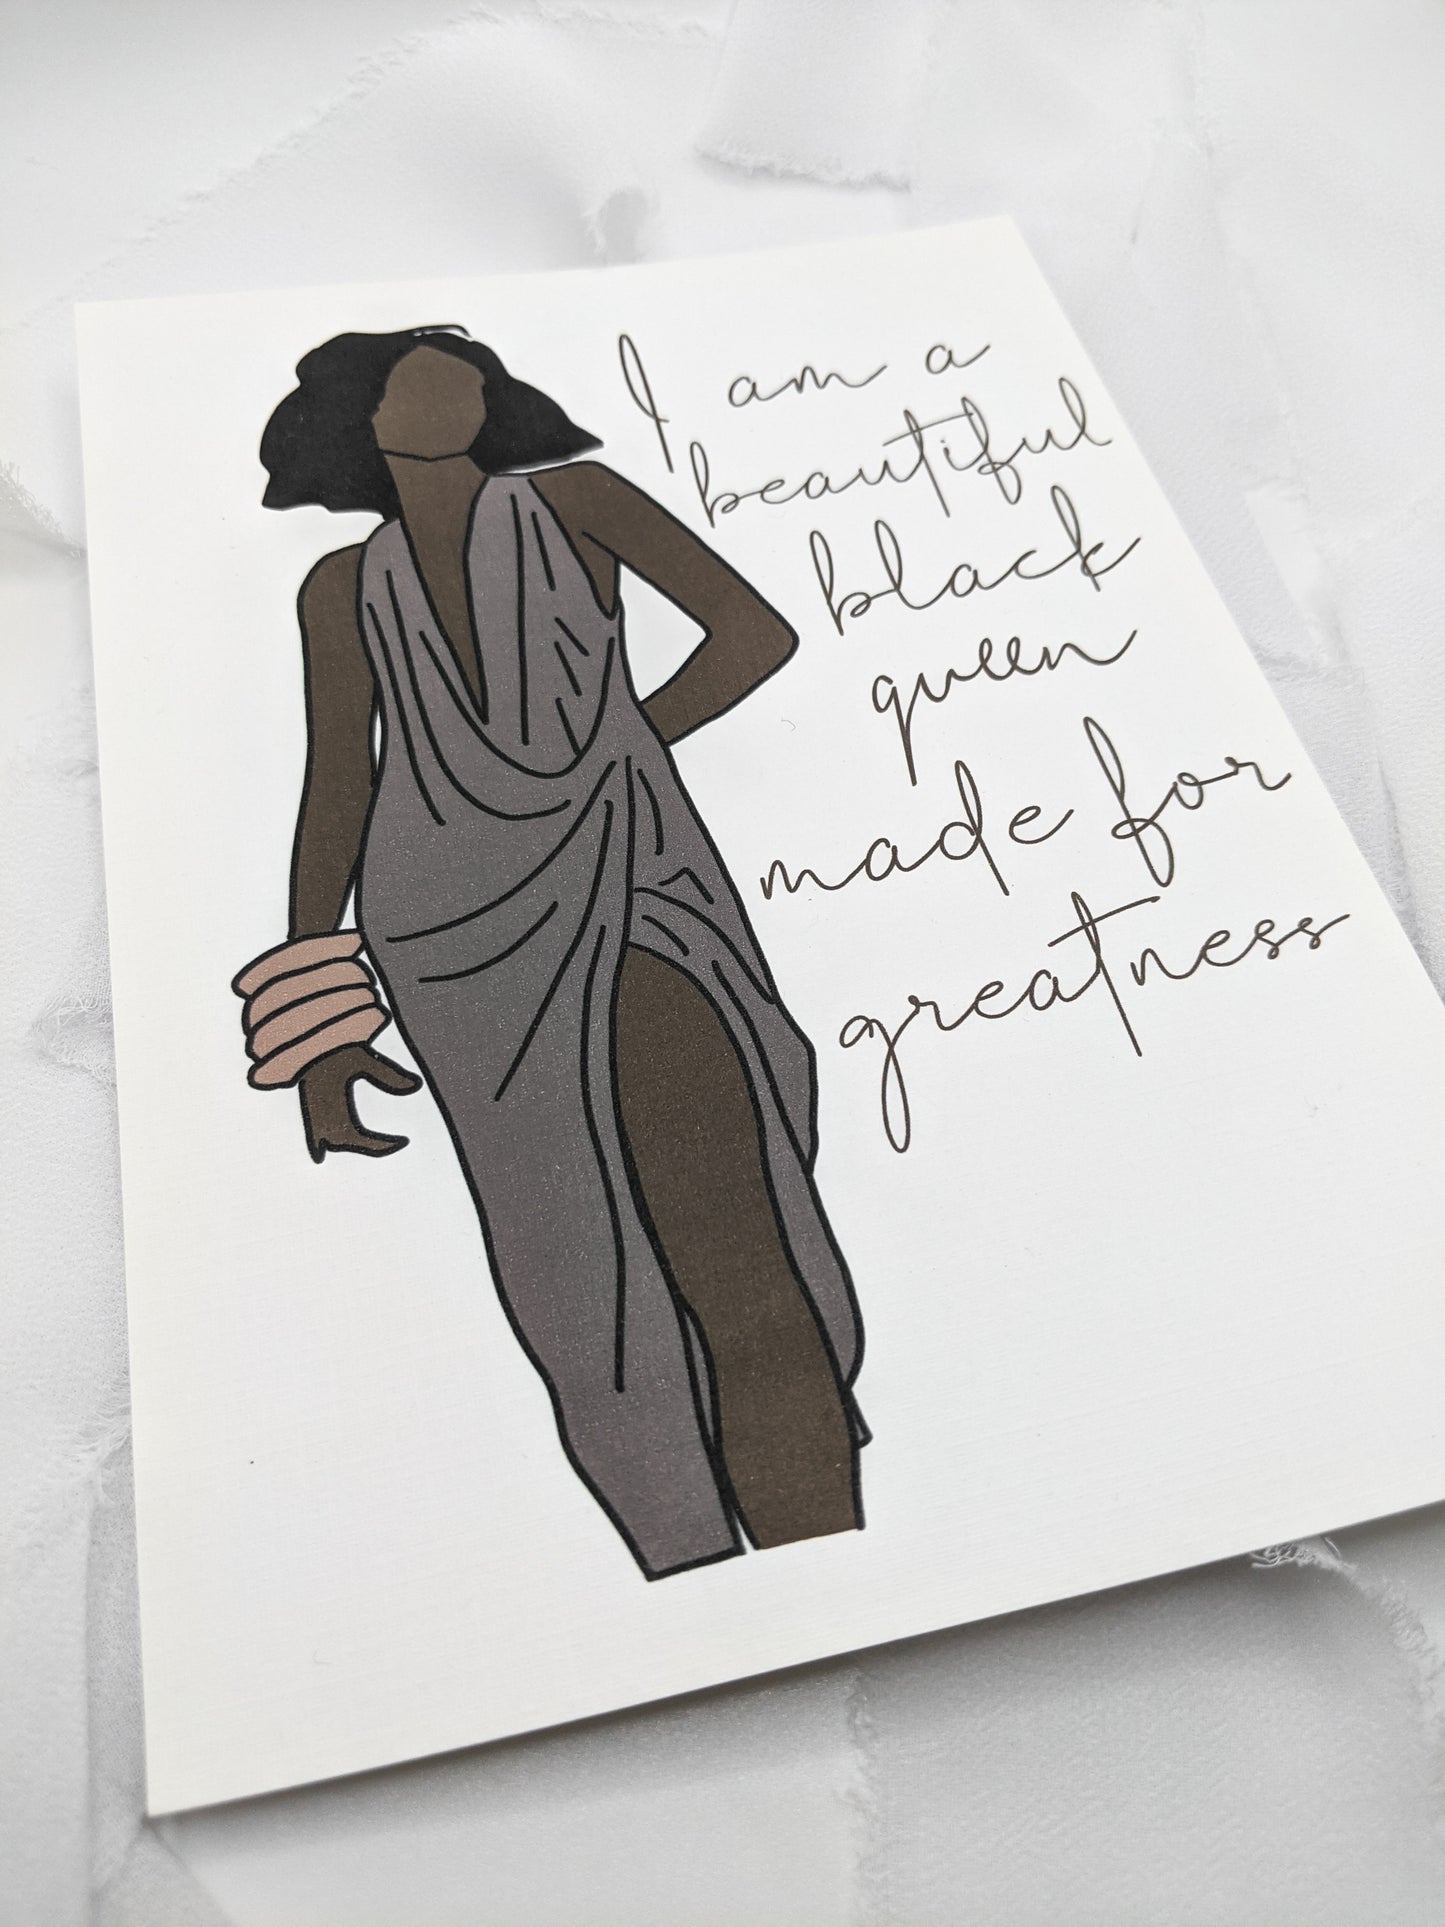 I am a
beautiful
black
queen
made for
greatness